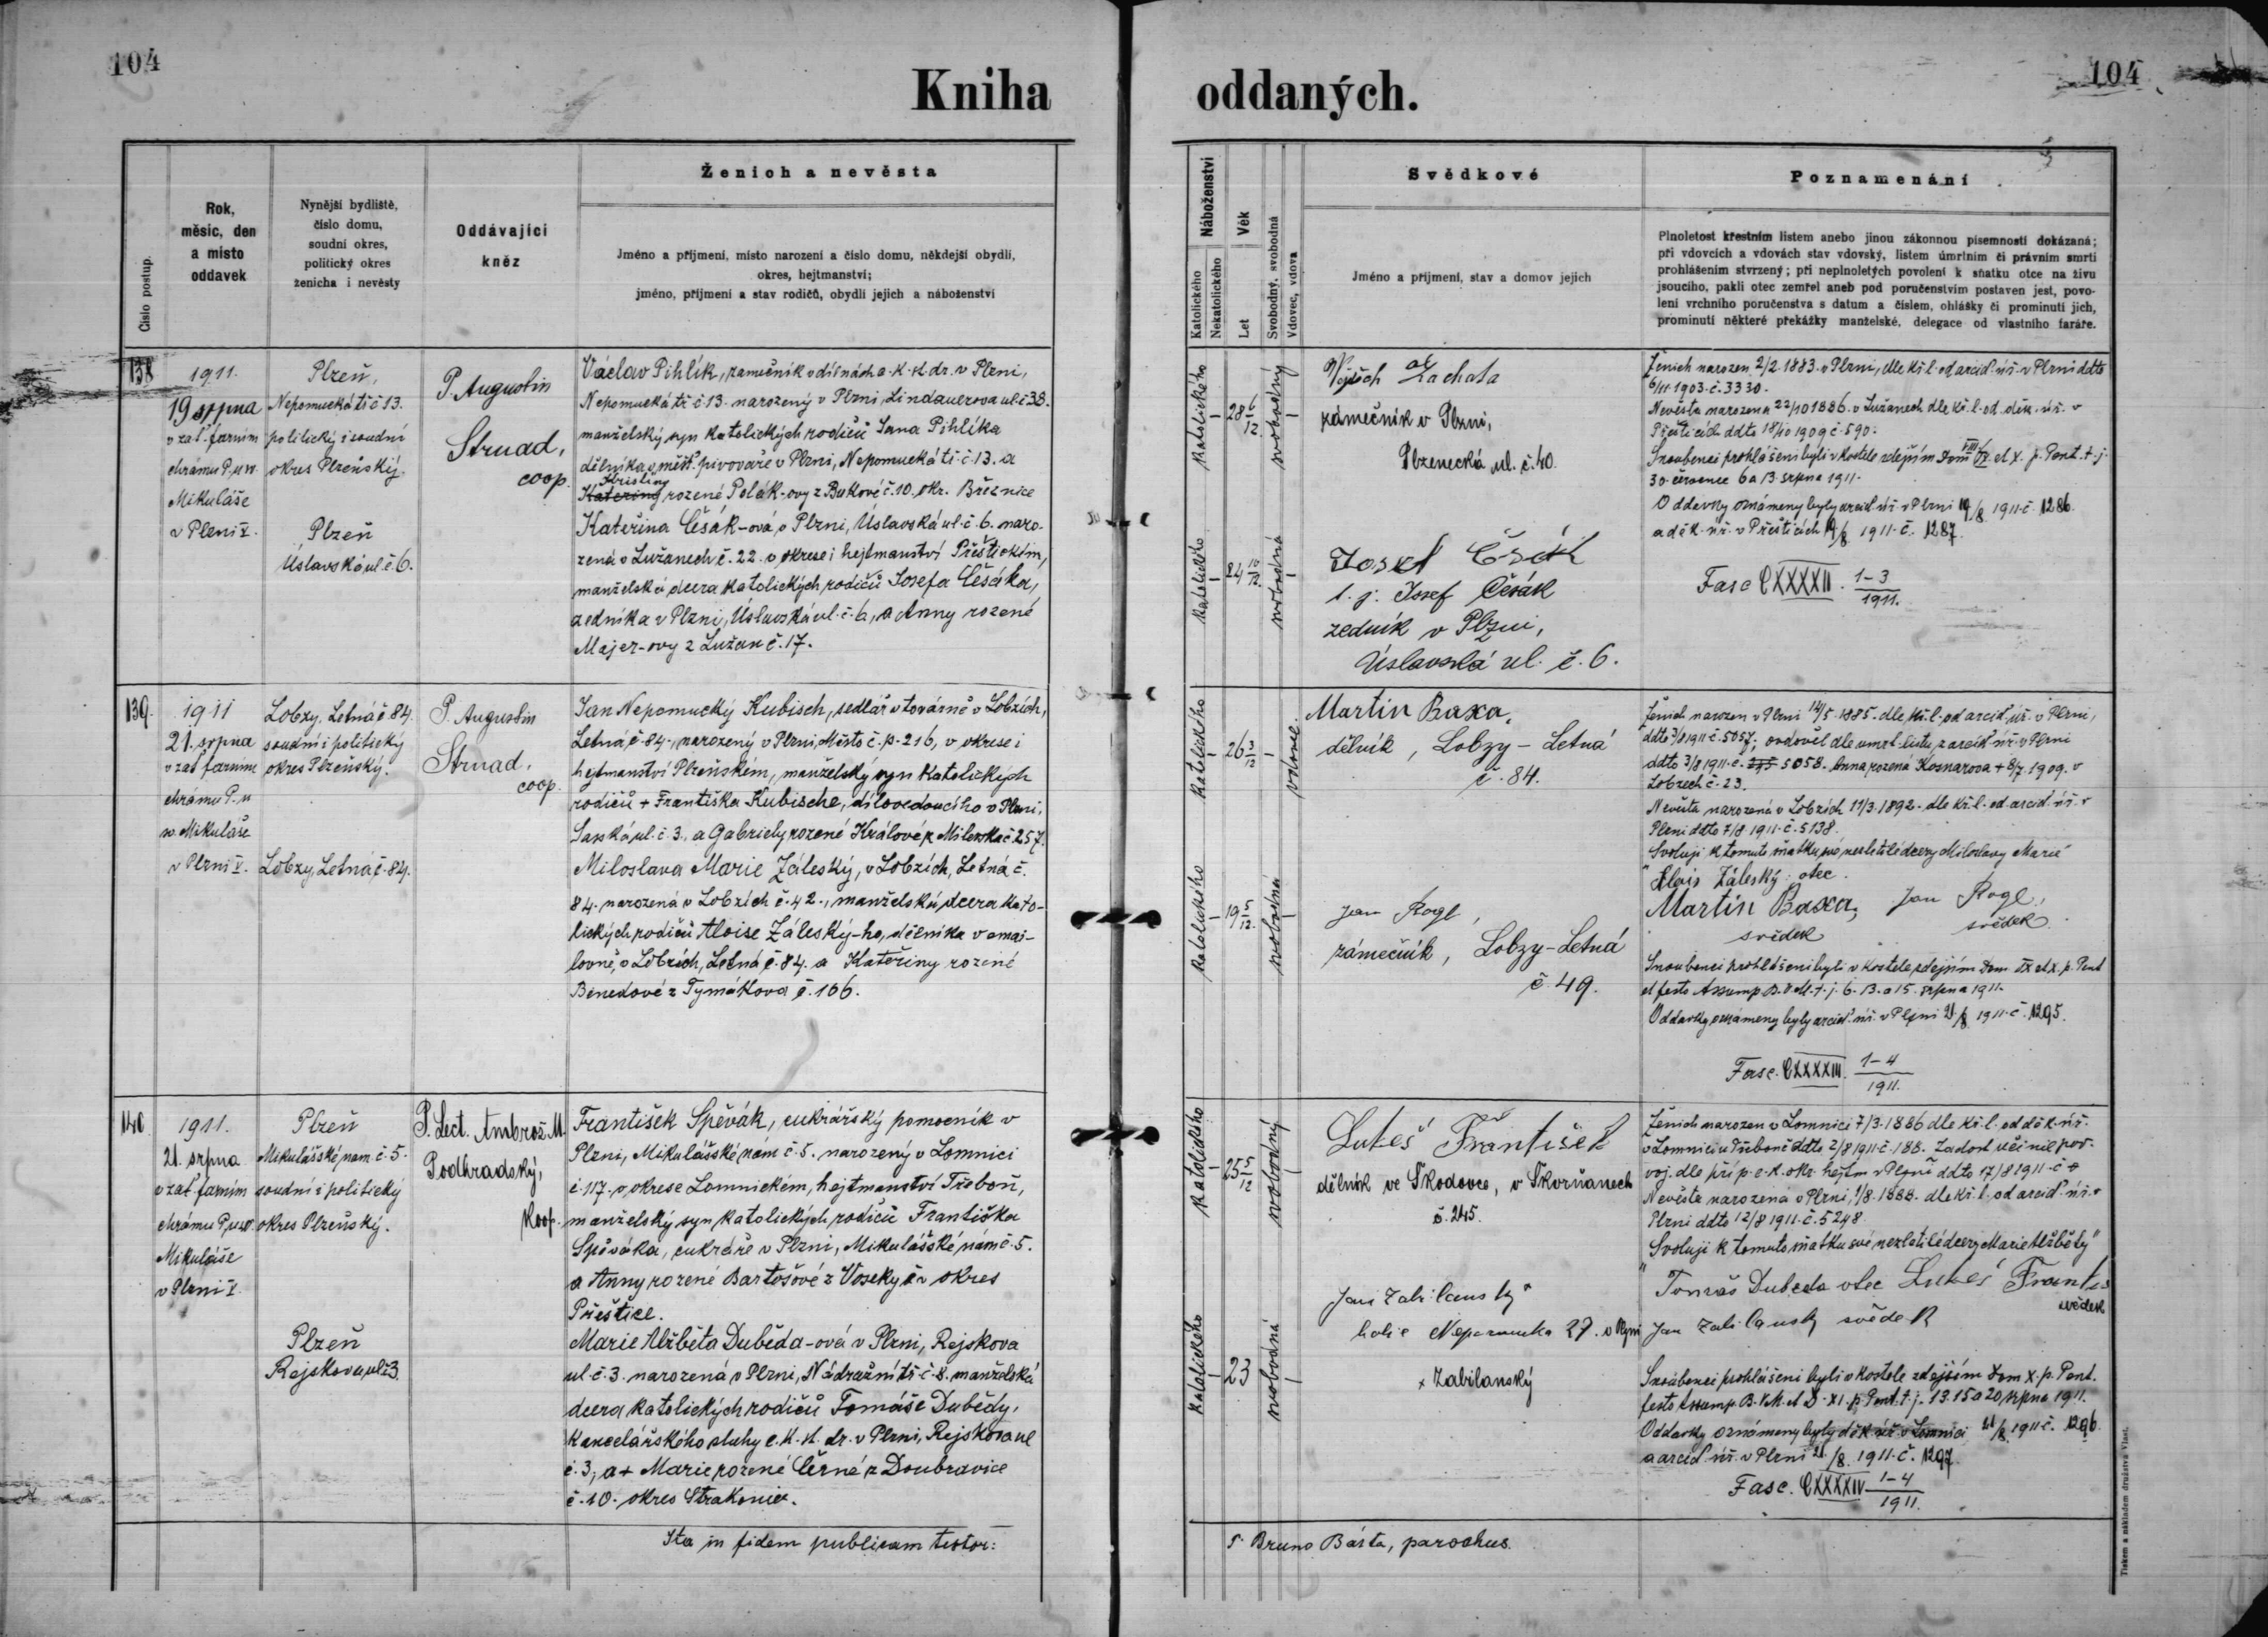 104
Kniha
oddaných.
104
Číslo postup.
Rok,
měsíc, den
a místo
oddavek
Nynější bydliště,
číslo domu,
soudní okres,
politický okres
ženicha i nevěsty
Oddávající
kněz
Ženich a nevěsta
Jméno a příjmení, místo narození a číslo domu, někdejší obydlí,
okres, hejtmanství;
jméno, příjmení a stav rodičů, obydlí jejich a náboženství
138
1911.
19 srpna
v zat. farním
chrámu P. u sv.
Mikuláše
v Plzni V.
Plzeň,
Nepomucká tř. č 13.
politický i soudní
okres Plzeňský.
Plzeň
Úslavská ul. č. 6.
P. Augustin
Strnad,
coop.
Václav Pihlík, zámečník v dílnách c. k. st. dr. v Plzni,
Nepomucká tř. č 13. narozený v Plzni, Lindauerova ul. č 38.
manželský syn katolických rodičů Jana Pihlíka
dělníka v měšť. pivovaře v Plzni, Nepomucká tř. č. 13. a
Kristiny
Kateřiny rozené Polák-ovy z Bukové č. 10. okr. Březnice
Kateřina Češák-ová, v Plzni, Úslavská ul. č. 6. naro-
zená v Lužanech č. 22. v okrese i hejtmanství Přeštickém,
manželská dcera katolických rodičů Josefa Češáka,
zedníka v Plzni, Úslavská ul. č. 6, a Anny rozené
Majer-ovy z Lužan č. 17.
139.
1911
21. srpna
v zat. farním
chrámu P. u
sv. Mikuláše
v Plzni V.
Lobzy, Letná č. 84.
soudní i politický
okres Plzeňský.
Lobzy, Letná č. 84.
P. Augustin
Strnad,
coop.
Jan Nepomucký Kubisch, sedlář v továrně v Lobzích,
Letná č. 84., narozený v Plzni, Město č. p. 216, v okrese i
hejtmanství Plzeňském, manželský syn katolických
rodičů + Františka Kubische, dílovedoucího v Plzni,
Saská ul. č. 3. a Gabriely rozené Králové z Milevska č. 257.
Miloslava Marie Záleský, v Lobzích, Letná č.
84. narozená v Lobzích č. 42., manželská dcera kato-
lických rodičů Aloise Záleský-ho, dělníka v smal-
tovně, v Lobzích, Letná č. 84. a Kateřiny rozené
Benedové z Tymákova č. 106.
140
1911.
21. srpna
v zat. farním
chrámu P. u sv.
Mikuláše
v Plzni V.
Plzeň
Mikulášské nám. č. 5.
soudní i politický
okres Plzeňský.
Plzeň
Rejskova ul. č 3.
P. Lect. Ambrož M.
Podhradský,
koop.
František Spěvák, cukrářský pomocník v
Plzni, Mikulášské nám. č. 5. narozený v Lomnici
č. 117. v okrese Lomnickém, hejtmanství Třeboň,
manželský syn katolických rodičů Františka
Spěváka, cukráře v Plzni, Mikulášské nám č. 5.
a Anny rozené Bartošové z Voseky okres
Přeštice.
Marie Alžběta Duběda-ová v Plzni, Rejskova
ul. č. 3. narozená v Plzni, Nádražní tř. č. 8. manželská
dcera katolických rodičů Tomáše Dubědy,
kancelářského sluhy c. k. st. dr. v Plzni, Rejskova ul
č. 3, a + Marie rozené Černé z Doubravice
č. 10. okres Strakonice.
Ita in fidem publicam testor:
Náboženství
Katolického
Nekatolického
Věk
Let
Svobodný, svobodná
Vdovec, vdova
Svědkové
Jméno a příjmení, stav a domov jejich
Poznamenání
Plnoletost křestním listem anebo jinou zákonnou písemností dokázaná;
při vdovcích a vdovách stav vdovský, listem úmrtním či právním smrti
prohlášením stvrzený; při neplnoletých povolení k sňatku otce na živu
jsoucího, pakli otec zemřel aneb pod poručenstvím postaven jest, povo-
lení vrchního poručenstva s datum a číslem, ohlášky či prominutí jich,
prominutí některé překážky manželské, delegace od vlastního faráře.
katolického
28 6/12
svobodný
Vojtěch Zachata
zámečník v Plzni,
Plzenecká ul. č. 40.
katolického
24 10/12
svobodná
Josef Češák
t. j. Josef Češák
zedník v Plzni,
Úslavská ul. č. 6.
Ženich narozen 2/2. 1883. v Plzni, dle kř. l. od arcid. úř. v Plzni ddto
6/11 1903. č. 3330.
Nevěsta narozena 22/10 1886. v Lužanech dle kř. l. od. děk. úř. v
Přešticích ddto 18/10 1909 č. 590.
Snoubenci prohlášeni byli v kostele zdejším Dom VIII IX. et X. p. Pent. t. j.
30. července 6 a 13. srpna 1911.
Oddavky oznámeny byly arcid. úř. v Plzni 19/8 1911 č. 1286
a děk. úř. v Přešticích 19/8 1911 č. 1287.
Fasc CXXXXII. 1-3/1911.
katolického
26 3/12
vdovec.
Martin Baxa,
dělník, Lobzy – Letná
č. 84.
katolického
19 5/12.
svobodná
Jan Rogl,
zámečník, Lobzy-Letná
č 49.
Ženich narozen v Plzni 14/5. 1885. dle kř. l. od arcid. úř. v Plzni,
ddto 3/8 1911 č. 5057; ovdověl dle úmrt. listu z arcid. úř. v Plzni
ddto 3/8 1911. č. 5058. Anna rozená Kosnarova + 8/7. 1909. v
Lobzech č. 23.
Nevěsta narozená v Lobzích 11/3. 1892. dle kř. l. od arcid. úř. v
Plzni ddto 7/8 1911. č. 5138.
Svoluji k tomuto sňatku své nezletilé dcery Miloslavy Marie
Alois Záleský: otec.
Martin Baxa, Jan Rogl,
svědek svědek
Snoubenci prohlášeni byli v kostele zdejším Dom. IX et X. p. Pent
et festo Assump. B. V. M. t. j. 6. 13. a 15. srpna 1911.
Oddavky oznámeny byly arcid. úř. v Plzni 21/8. 1911. č. 1295.
Fasc. CXXXXIII. 1-4/1911.
katolického
25 5/12
svobodný
Lukeš František
dělník ve Škodovce, v Skvrňanech
č. 245.
katolického
23
svobodná
Jan Zabilanský
holič Nepomucká 27. v Plzni
x Zabilanský
Ženich narozen v Lomnici 7/3. 1886 dle kř. l. od děk. úř.
v Lomnici u Třeboně ddto 2/8 1911 č. 188. Zadost učinil pov.
voj. dle příp. c. k. okr. hejtm v Plzni ddto 17/8 1911 č
Nevěsta narozena v Plzni, 1/8. 1888. dle kř. l. od arcid. úř. v
Plzni ddto 12/8 1911. č. 5248.
Svoluji k tomuto sňatku své nezletilé dcery Marie Alžběty"
Tomáš Dubeda otec Lukeš Františ
svědek
Jan Zabilanský svědek
Snoubenci prohlášeni byli v kostele zdejším Dom X. p. Pent.
festo Assump. B. V. M. et D. XI. p. Pent. t. j. 13. 15 a 20 srpna 1911.
Oddavky oznámeny byly děk. úř. v Lomnici 21/8. 1911 č. 1296.
a arcid. úř. v Plzni 21/8. 1911. č. 1297.
Fasc. CXXXXIV 1-4/1911.
P. Bruno Bárta, parochus.
Tiskem a nákladem družstva Vlast.